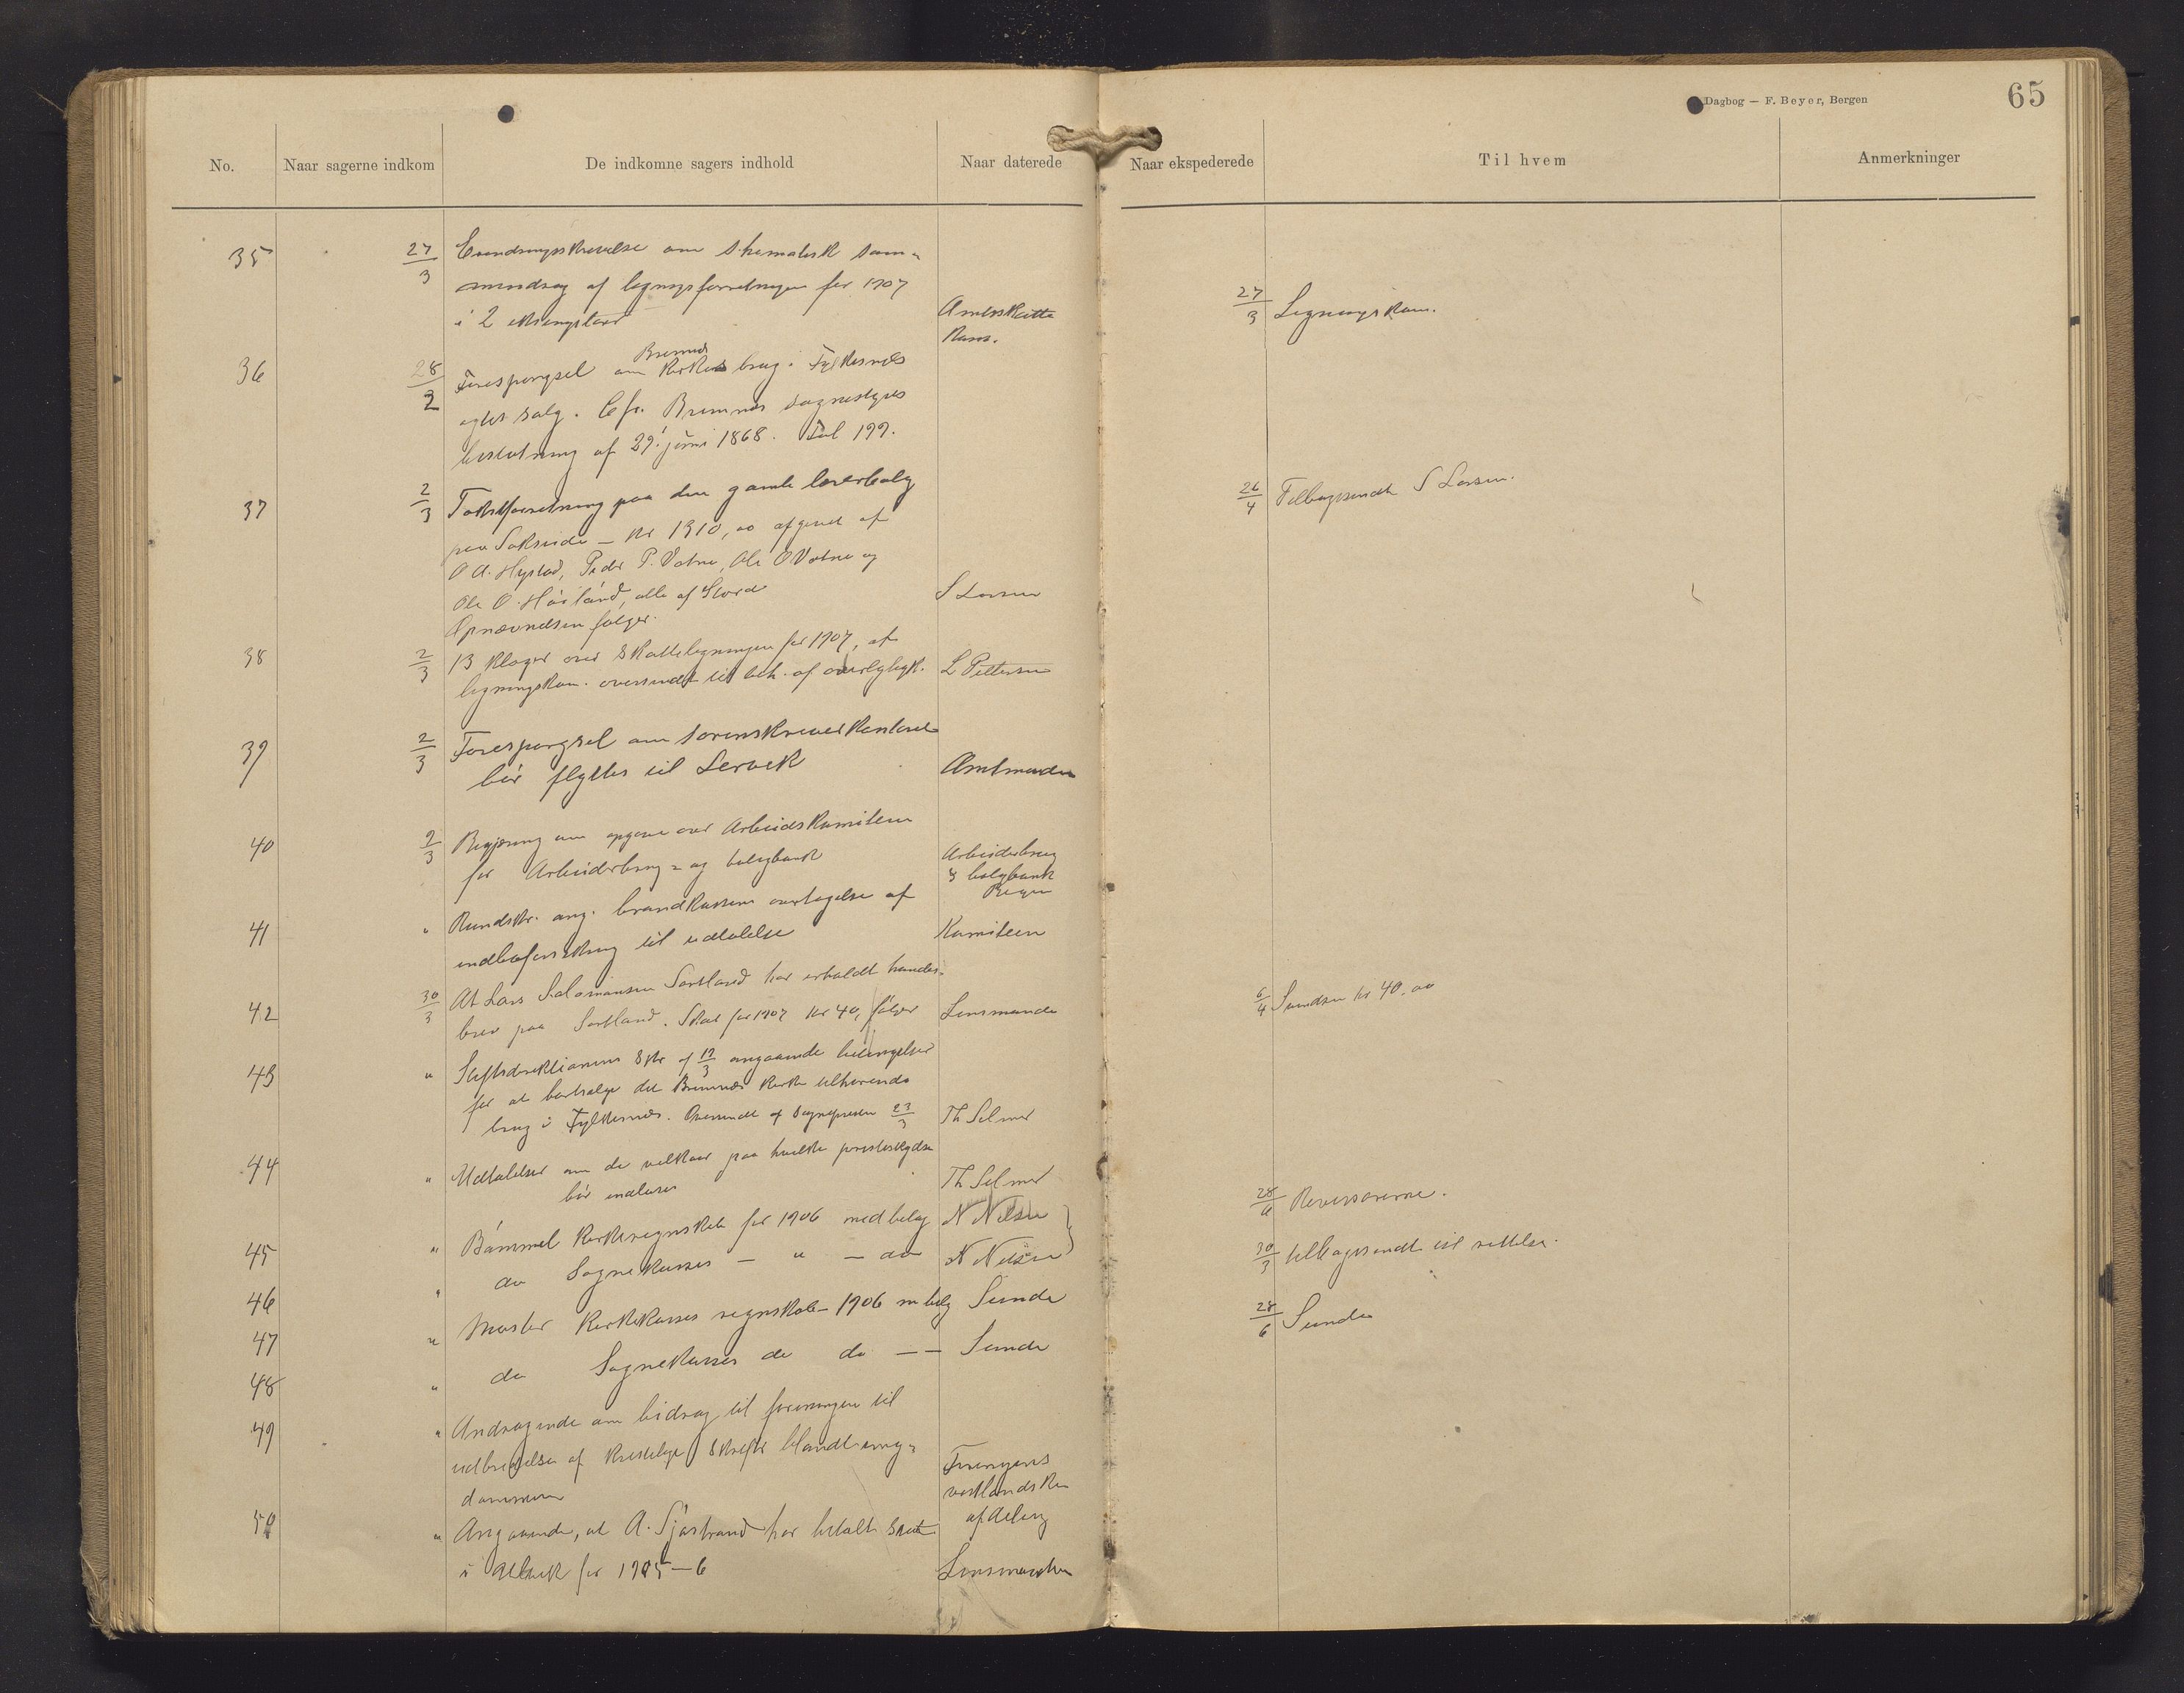 Dagbog — F. Beyer, Bergen
65
No.
Naar sagerne indkom
De indkomne sagers indhold
Naar daterede
Naar ekspederede
Til hvem
Anmerkninger
35 27/3 om skematisk sam-
mendrag af ligningsforretningen for 1907
i 2 eksemplarer
27/3 Ligningskom.
36 28/2 Forespørgsel om Bremnes kirkes brug i Fylkesnes
salg. Cfr. Bremnes sognestyres
beslutning af 29. juni 1868. Fol 199.
37 2/3 Takstforretning paa den gamle lærerbolig
paa Sakseide — kr 1910,00 afgivet af
O A. Hystad, Peder P. Vatne, Ole O Vatne og
Ole O. Høiland, alle af Stord
Opnævnelsen følger.
S Larsen
26/4 Tilbagesendt S Larsen.
38 2/3 13 klager over skatteligningen for 1907, af
ligningskom. oversendt til beh. af overlignk.
L Pettersen
39 2/3 Forespørgsel om sorenskriverkontoret
bør flyttes til Lervik
Amtmanden
40 2/3 Begjæring om opgave over Arbeidskomiteen
for Arbeiderbrug- og boligbank
Arbeiderbrug
& boligbank
41 " Rundskr. ang. brandkassens overtagelse af
indboforsikring til udtalelse
Komiteen
42 30/3 At Lars Salomonsen Sortland har erholdt handels-
brev paa Sortland. Skat for 1907 kr 40, følger
Lensmanden
6/4 Sunde kr 40.00
43 " Stiftsdirektionens skr af 19/3 angaaende betingelser
for at bortsælge det Bremnes kirke tilhørende
brug i Fylkesnes. Oversendt af Sognepresten 23/3
Th Selmer
44 " Udtalelser om de vilkaar paa hvilke
bør indløses
Th Selmer
45 " Bømmel kirkeregnskab for 1906 med bilag
N Nilsen
28/6 Revisorerne.
46 " do Sognekasses — " — do
N Nilsen
30/3 tilbagesendt til rettelse.
47 " Moster kirkekasses regnskab 1906 m bilag
Sunde
28/6 Sunde
48 " do Sognekasses do do — —
Sunde
49 " Andragende om bidrag til foreningen til
udbredelse af kristelige skrifter blandt ung-
dommen
Foreningens
vestlandske
afdeling
50 " Angaaende, at A. Sjøstrand har betalt skat
i for 1905—6
Lensmanden